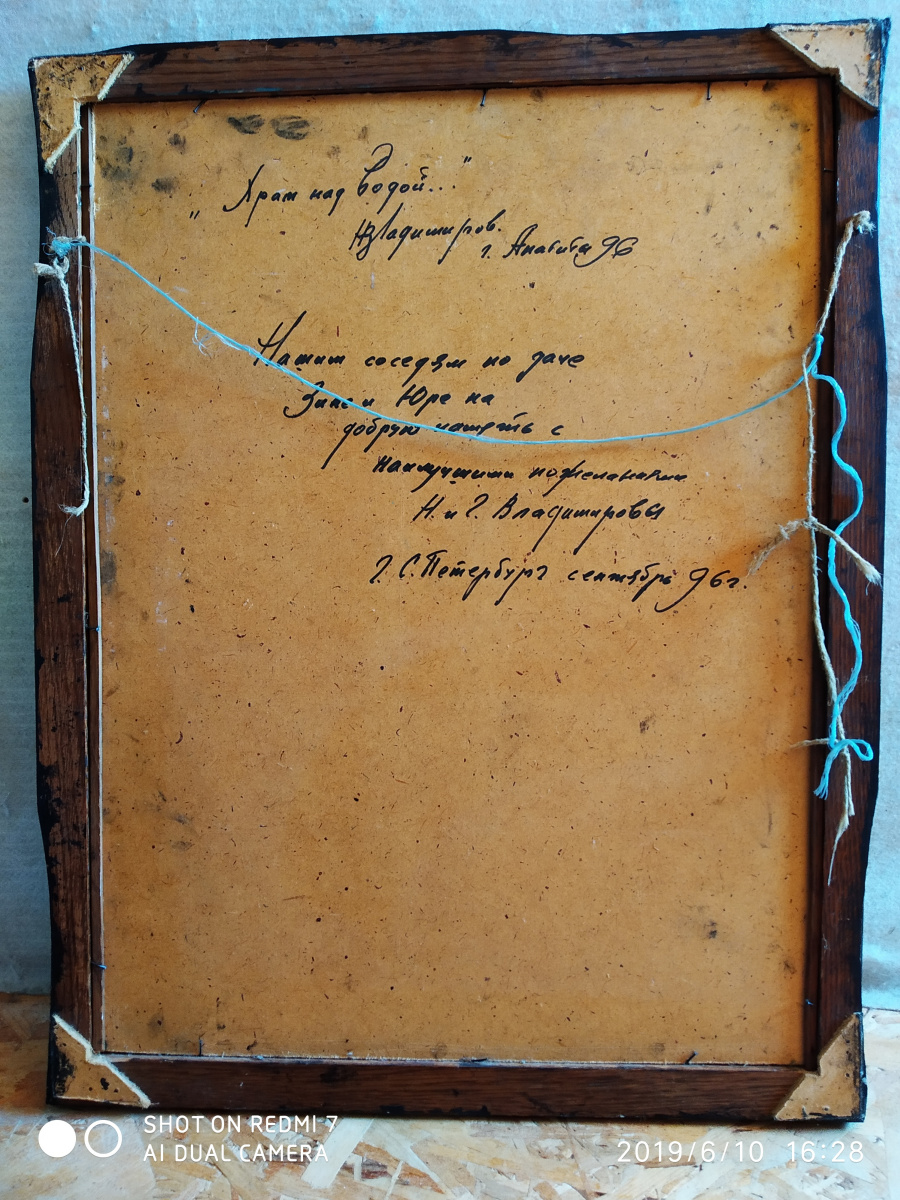 „Храм над водой..."
НВладимиров.
г. Анапа 96
Нашим соседям по даче
Зине и Юре на
добрую память с
Наилучшими пожеланиями
Н. и Г. Владимировы
Г. С. Петербург сентябрь 96г.
SHOT ON REDMI 7
AI DUAL CAMERA
2019/6/10 16:28